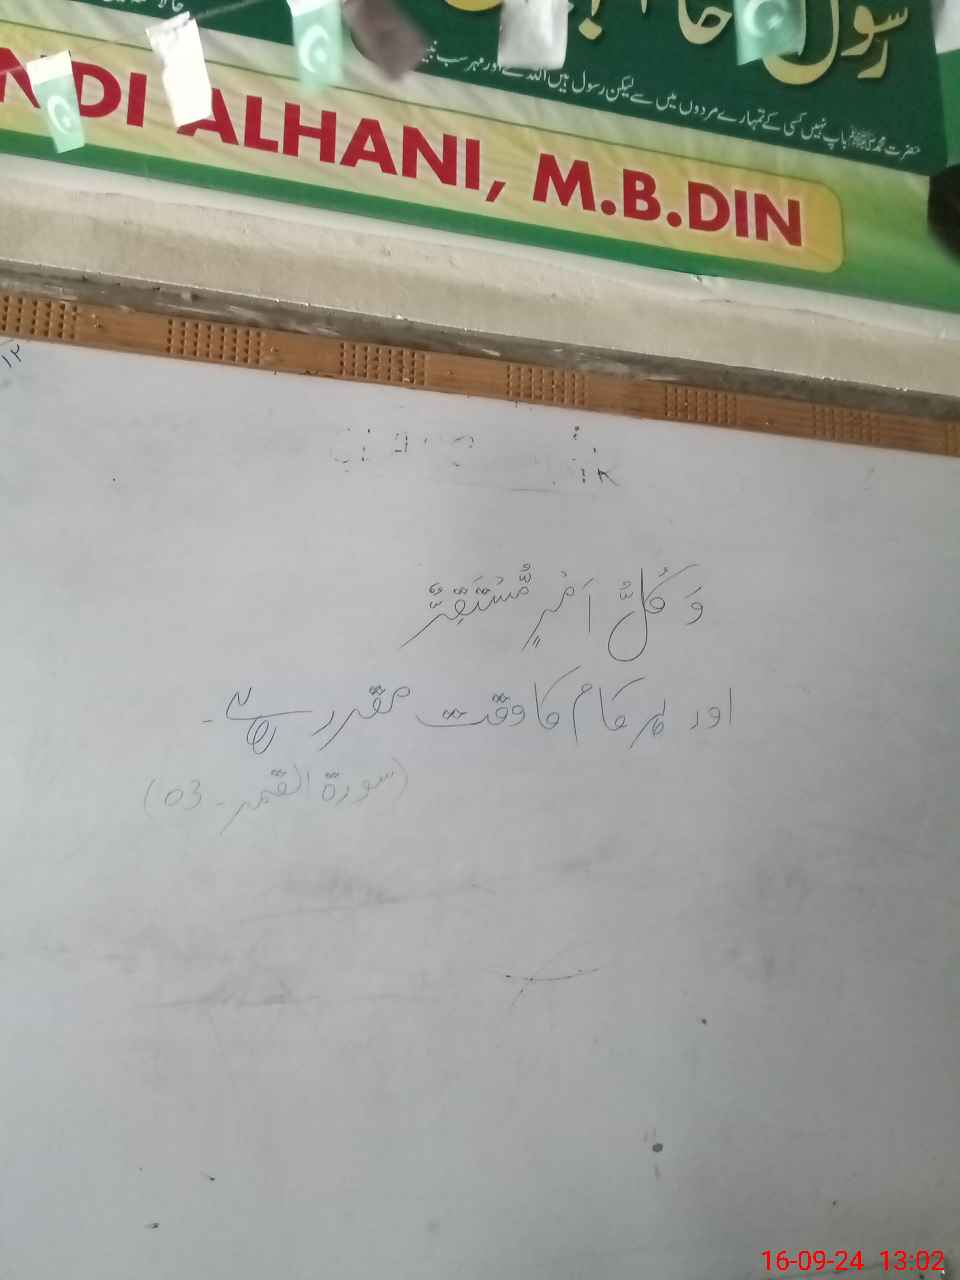 رسول
حضرت محمد ﷺ باپ نہیں کسی کے تمہارے مردوں میں سے لیکن رسول ہیں اللہ کے اور مہر سب
NDI ALHANI, M.B.DIN
١٢
وَ كُلُّ اَمْرٍ مُّسْتَقِرٌّ
اور ہر کام کا وقت مقرر ہے۔
(سورة القمر۔ 03)
16-09-24 13:02